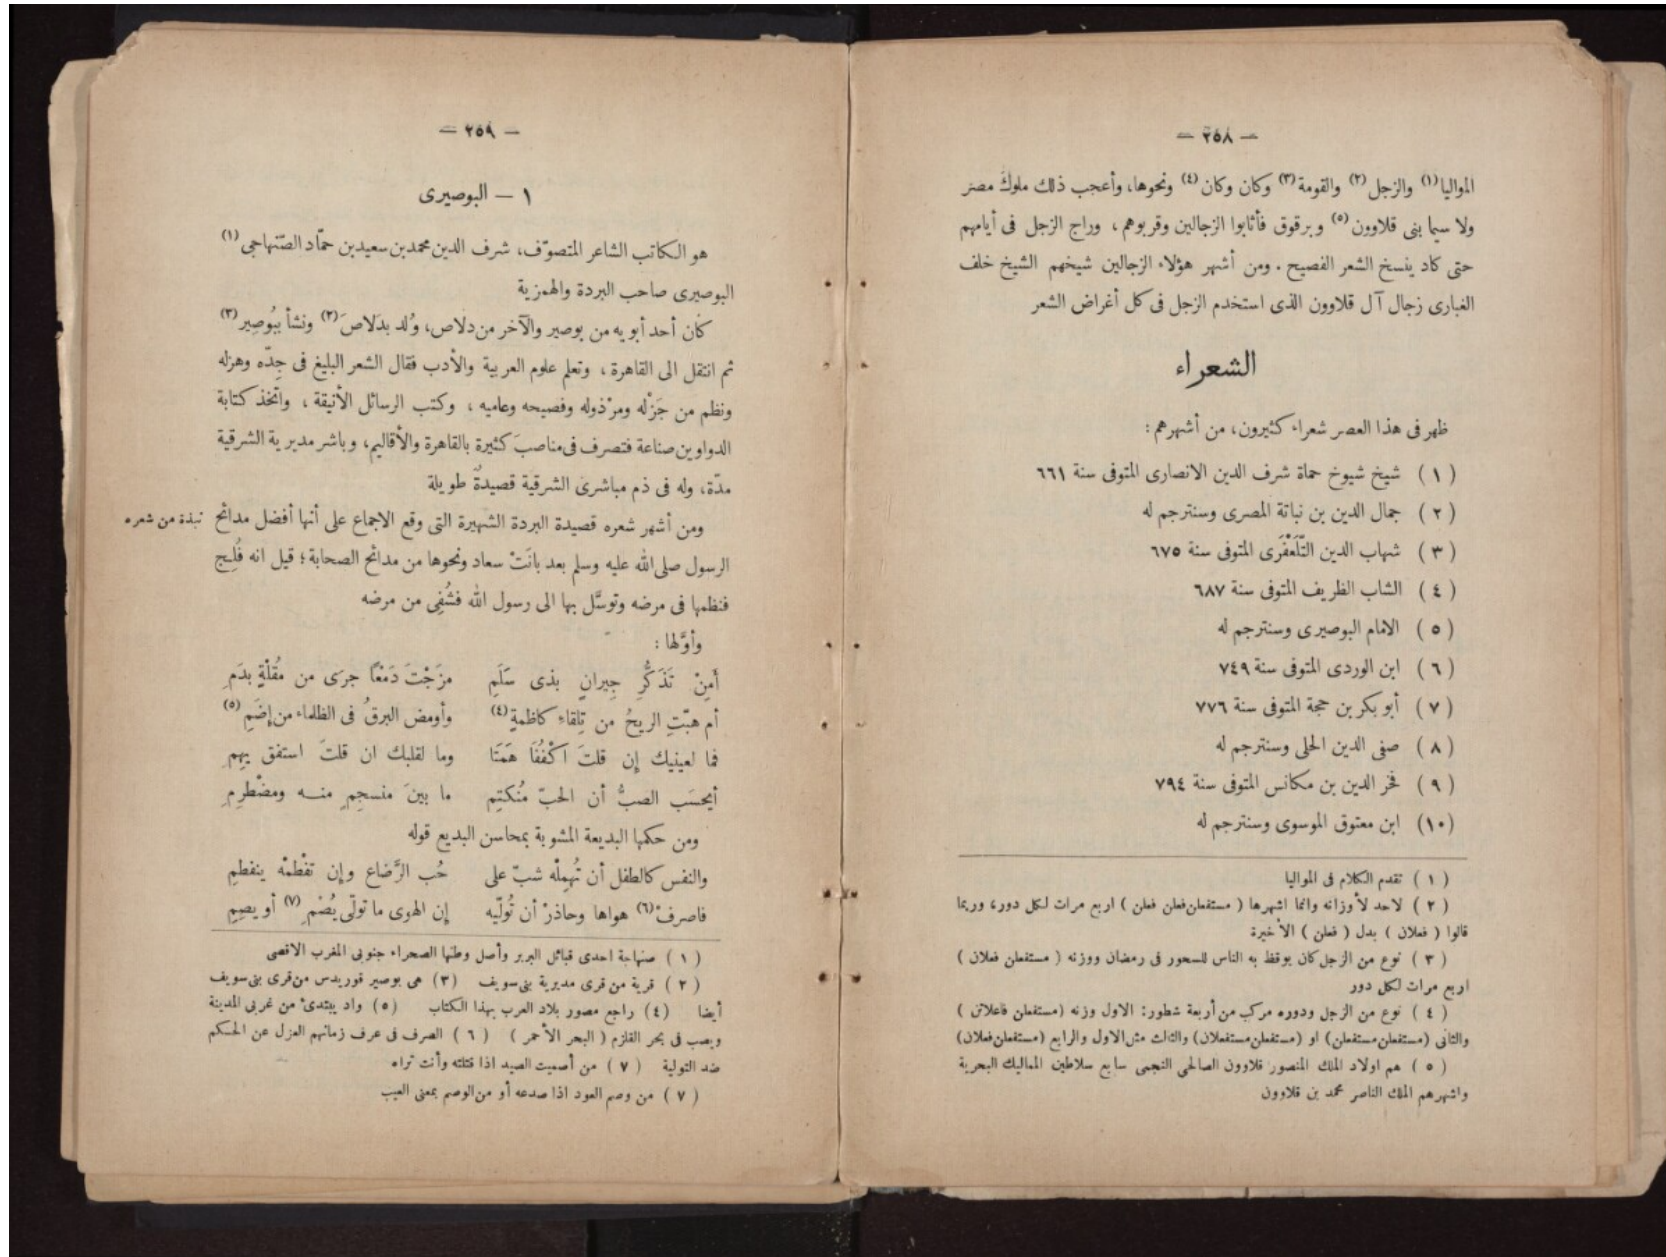 — ٢٥٨ —
المواليا (١) والزجل (٢) والقومة (٣) وكان وكان (٤) ونحوها، وأعجب ذلك ملوك مصر
ولا سيما بنى قلاوون (٥) وبرقوق فأثابوا الزجالين وقربوهم، وراج الزجل فى أيامهم
حتى كاد ينسخ الشعر الفصيح. ومن أشهر هؤلاء الزجالين شيخهم الشيخ خلف
الغبارى زجال آل قلاوون الذى استخدم الزجل فى كل أغراض الشعر
الشعراء
ظهر فى هذا العصر شعراء كثيرون، من أشهرهم:
(١) شيخ شيوخ حماة شرف الدين الانصارى المتوفى سنة ٦٦١
(٢) جمال الدين بن نباتة المصرى وسنترجم له
(٣) شهاب الدين التّلَعْفَرى المتوفى سنة ٦٧٥
(٤) الشاب الظريف المتوفى سنة ٦٨٧
(٥) الامام البوصيرى وسنترجم له
(٦) ابن الوردى المتوفى سنة ٧٤٩
(٧) أبو بكر بن حجة المتوفى سنة ٧٧٦
(٨) صفى الدين الحلى وسنترجم له
(٩) فخر الدين بن مكانس المتوفى سنة ٧٩٤
(١٠) ابن معتوق الموسوى وسنترجم له
(١) تقدم الكلام فى المواليا
(٢) لاحد لأوزانه وانما اشهرها (مستفعلن فعلن فعلن) اربع مرات لكل دور، وربما
قالوا (فعلان) بدل (فعلن) الأخيرة
(٣) نوع من الزجل كان يوقظ به الناس للسحور فى رمضان ووزنه (مستفعلن فعلان)
اربع مرات لكل دور
(٤) نوع من الزجل ودوره مركب من أربعة شطور: الاول وزنه (مستفعلن فاعلاتن)
والثانى (مستفعلن مستفعلن) او (مستفعلن مستفعلان) والثالث مثل الاول والرابع (مستفعلن فعلان)
(٥) هم اولاد الملك المنصور قلاوون الصالحى النجمى سابع سلاطين المماليك البحرية
واشهرهم الملك الناصر محمد بن قلاوون
— ٢٥٩ —
١ — البوصيرى
هو الكاتب الشاعر المتصوّف، شرف الدين محمد بن سعيد بن حمّاد الصّنهاجى (١)
البوصيرى صاحب البردة والهمزية
كان أحد أبويه من بوصير والآخر من دلاص، وُلد بدَلاصَ (٢) ونشأ ببُوصِير (٣)
ثم انتقل الى القاهرة، وتعلم علوم العربية والأدب فقال الشعر البليغ فى جِدّه وهزله
ونظم من جَزْله ومرْذوله وفصيحه وعاميه، وكتب الرسائل الأنيقة، واتخذ كتابة
الدواوين صناعة فتصرف فى مناصبَ كثيرة بالقاهرة والأقاليم، وباشر مديرية الشرقية
مدّة، وله فى ذم مباشرى الشرقية قصيدةٌ طويلة
ومن أشهر شعره قصيدة البردة الشهيرة التى وقع الاجماع على أنها أفضل مدائح
نبذة من شعره
الرسول صلى الله عليه وسلم بعد بانَتْ سعاد ونحوها من مدائح الصحابة؛ قيل انه فُلِج
فنظمها فى مرضه وتوسَّل بها الى رسول الله فشُفِى من مرضه
وأوَّلها:
أَمِنْ تَذَكُّرِ جِيرانٍ بذى سَلَمِ مزَجْتَ دَمْعًا جرَى من مُقْلةٍ بدَمِ
أم هبّتِ الريحُ من تِلقاءِ كاظمةٍ (٤) وأومض البرقُ فى الظلماء من إضَمِ (٥)
فما لعينيك إن قلتَ اكْفُفَا هَمَتَا وما لقلبك ان قلتَ استفق يهِمِ
أيحسَب الصبُّ أن الحبّ مُنكتِم ما بينَ منسجِمٍ منه ومضْطرِمِ
ومن حكمها البديعة المشوبة بمحاسن البديع قوله
والنفس كالطفل أن تُهمِلْه شبّ على حُب الرَّضاع وإن تفْطمْه ينفطمِ
فاصرفْ (٦) هواها وحاذرْ أن تُولّيه إن الهوى ما تولّى يُصْمِ (٧) أو يصِمِ
(١) صنهاجة احدى قبائل البربر وأصل وطنها الصحراء جنوبى المغرب الاقصى
(٢) قرية من قرى مديرية بنى سويف (٣) هى بوصير قوريدس من قرى بنى سويف
أيضا (٤) راجع مصور بلاد العرب بهذا الكتاب (٥) واد يبتدئ من غربى المدينة
ويصب فى بحر القلزم (البحر الأحمر) (٦) الصرف فى عرف زمانهم العزل عن الحكم
ضد التولية (٧) من أصميت الصيد اذا قتلته وأنت تراه
(٧) من وصم العود اذا صدعه أو من الوصم بمعنى العيب